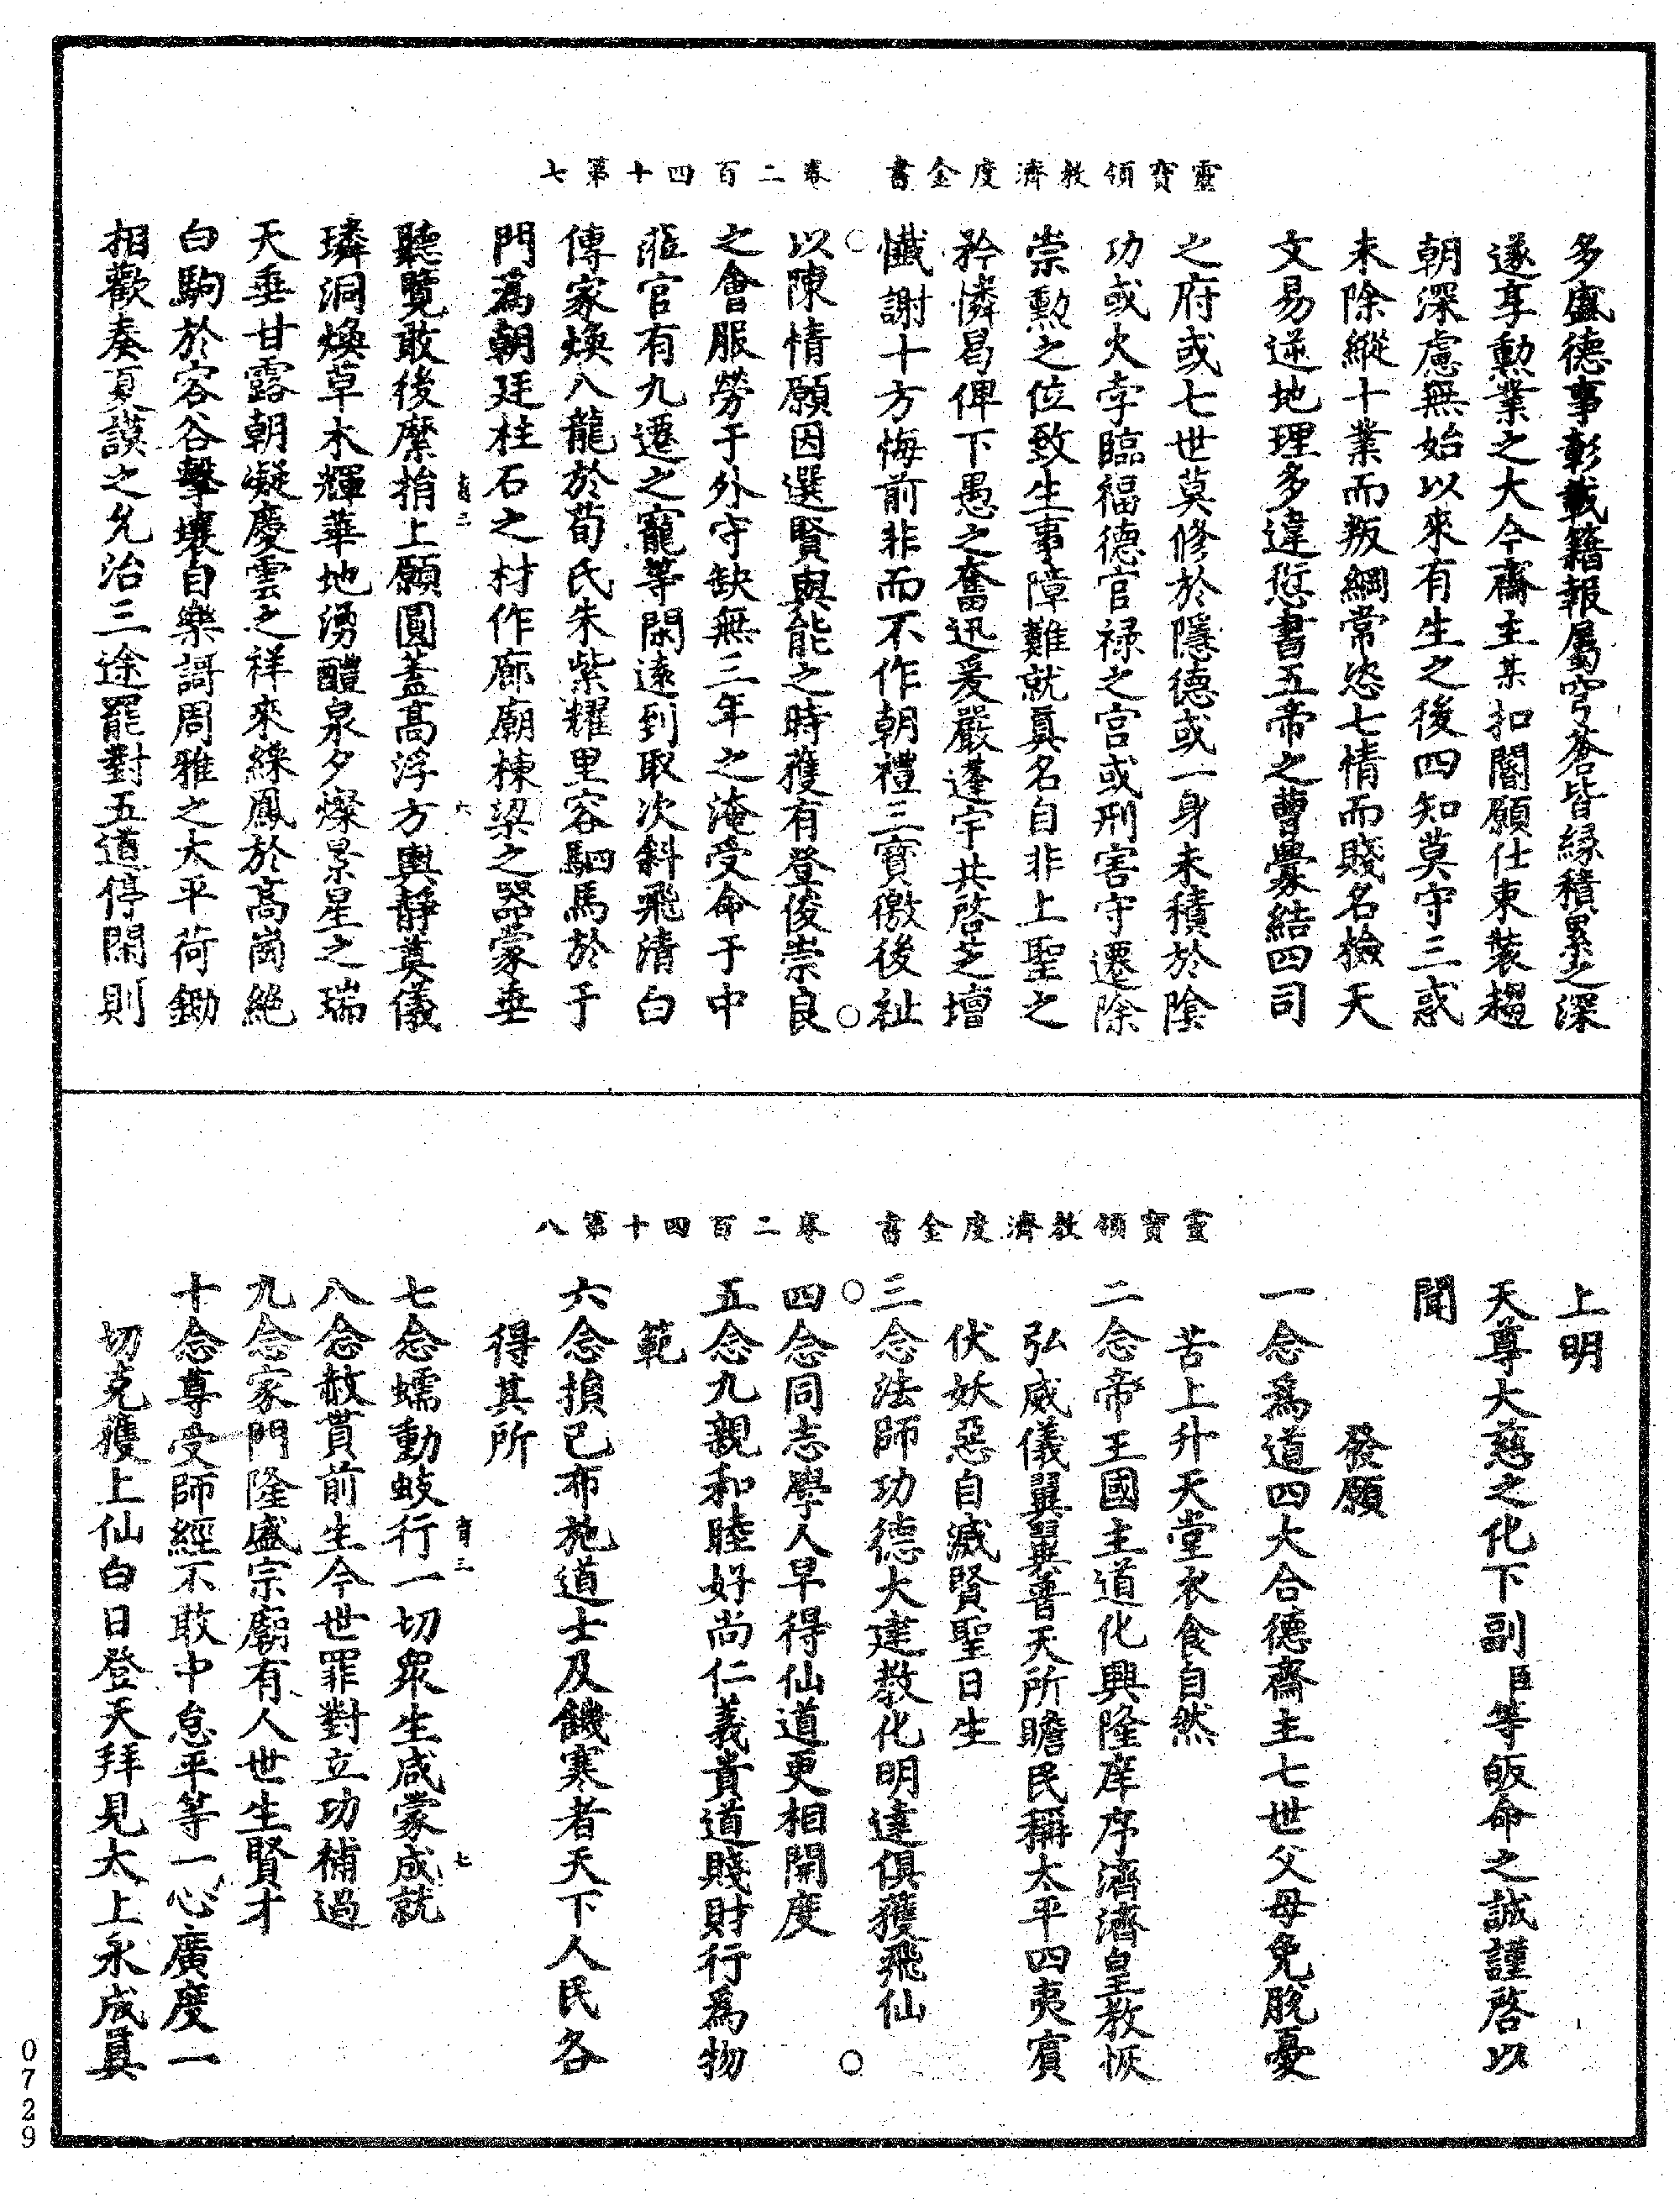 靈寶領教濟度金書　卷二百四十第七
多盛德事彰載籍報屬穹蒼皆緣積累之深
遂享勳業之大今齋主某扣閽願仕束裝趨
朝深慮無始以來有生之後四知莫守三惑
未除縱十業而叛綱常恣七情而賤名檢天
文易逆地理多違愆書五帝之曹釁結四司
之府或七世莫修於隱德或一身未積於陰
功或火孛臨福德官祿之宮或刑害守遷除
崇勳之位致生事障難就真名自非上聖之
矜憐曷俾下愚之奮迅爰嚴蓬宇共啓芝壇
懺謝十方悔前非而不作朝禮三寶徼後祉
以陳情願因選賢與能之時獲有登俊崇良
之會服勞于外守缺無三年之淹受命于中
涖官有九遷之寵等閑遠到取次斜飛清白
傳家煥八龍於荀氏朱紫耀里容駟馬於于
門蔿朝廷柱石之材作廊廟棟梁之器蒙垂
育三　六
聽覽敢後縻捐上願圓蓋高浮方輿靜奠儀
璘洞煥草木輝華地湧醴泉夕燦景星之瑞
天垂甘露朝凝慶雲之祥來綵鳳於高崗絕
白駒於容谷擊壤自樂謌周雅之太平荷鋤
相歡奏夏謨之允治三途罷對五道停閑則
靈寶領教濟度金書　卷二百四十第八
上明
天尊大慈之化下副臣等皈命之誠謹啓以
聞
發願
一念爲道四大合德齋主七世父母免脫憂
苦上升天堂衣食自然
二念帝王國主道化興隆庠序濟濟皇教恢
弘威儀翼翼普天所瞻民稱太平四夷賓
伏妖惡自滅賢聖日生
三念法師功德大建教化明達俱獲飛仙
四念同志學人早得仙道更相開度
五念九親和睦好尚仁義貴道賤財行爲物
範
六念損己布施道士及饑寒者天下人民各
得其所
育三　七
七念蠕動蚑行一切眾生咸蒙成就
八念赦貰前生今世罪對立功補過
九念家門隆盛宗廟有人世生賢才
十念尊受師經不敢中怠平等一心廣度一
切克獲上仙白日登天拜見太上永成真
0729